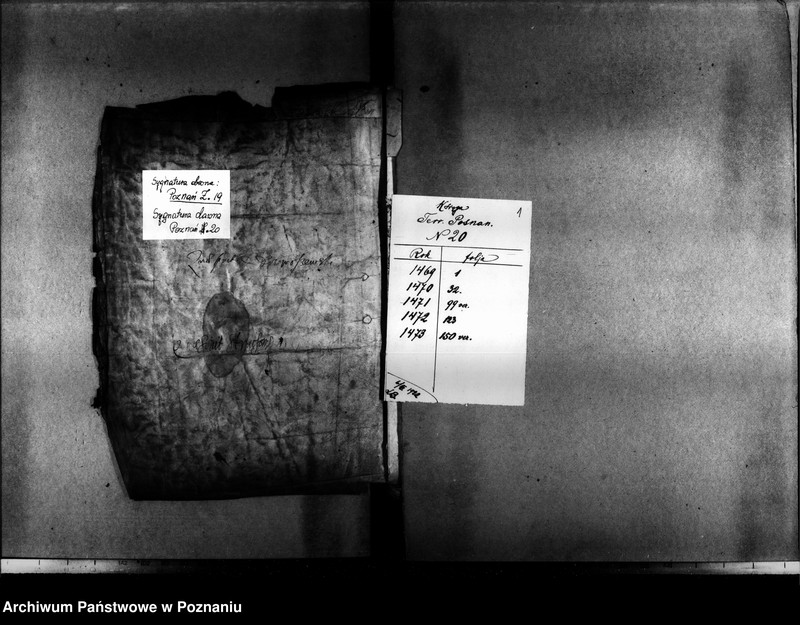 Sygnatura obecna:
Poznań Z. 19
Sygnatura dawna
Poznań Z. 20
1
Księga
Terr. Posnan.
N 20
Rok folja
1469 1
1470 32.
1471 99 va.
1472 123
1473 150 va.
Archiwum Państwowe w Poznaniu